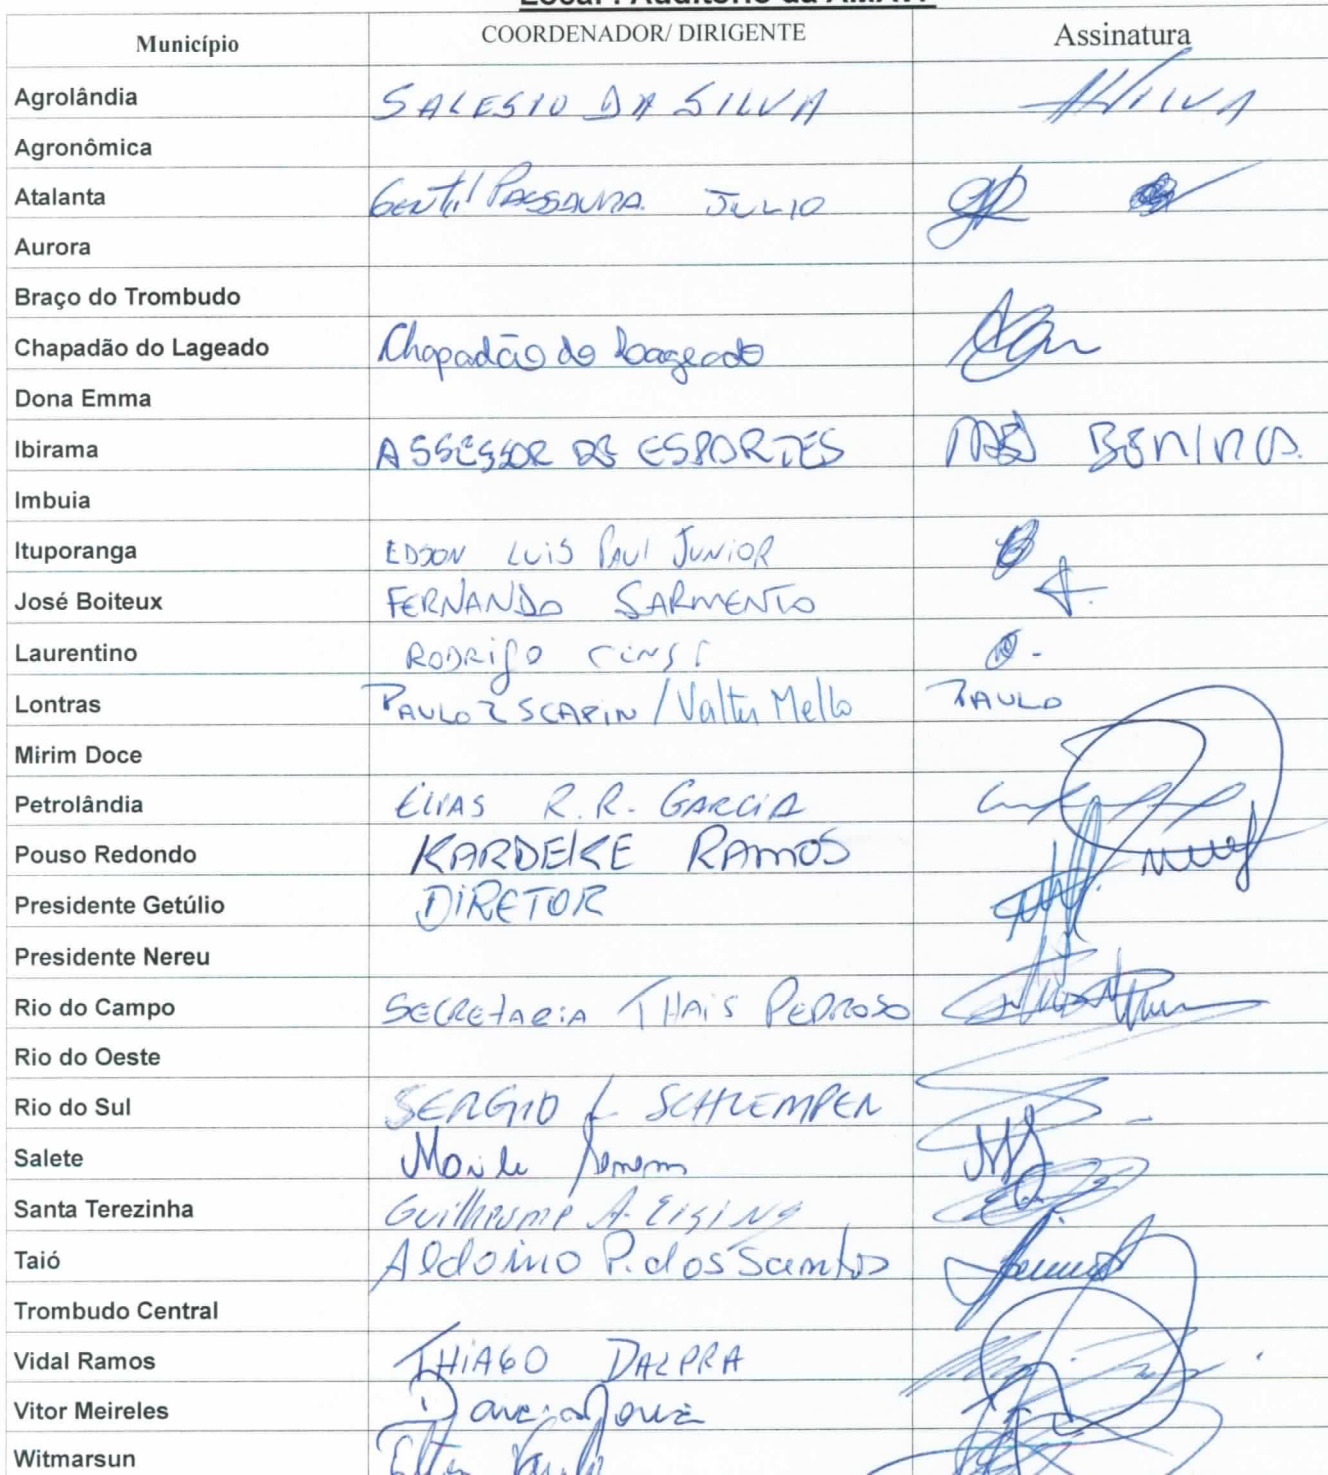 Local : Auditório da AMAVI
Município COORDENADOR/ DIRIGENTE Assinatura
Agrolândia SALESIO DA SILVA
Agronômica
Atalanta Gentil JULIO
Aurora
Braço do Trombudo
Chapadão do Lageado Chapadão do Lageado
Dona Emma
Ibirama ASSESSOR DE ESPORTES
Imbuia
Ituporanga EDSON LUIS PAUL JUNIOR
José Boiteux FERNANDO SARMENTO
Laurentino RODRIGO
Lontras PAULO SCARPIN / Valter Mello PAULO
Mirim Doce
Petrolândia ELIAS R.R. GARCIA
Pouso Redondo KARDEKE RAMOS
Presidente Getúlio DIRETOR
Presidente Nereu
Rio do Campo SECRETARIA THAIS PEDROSO
Rio do Oeste
Rio do Sul SERGIO L SCHLEMPER
Salete
Santa Terezinha Guilherme A. EISING
Taió Aldoino P. dos Santos
Trombudo Central
Vidal Ramos THIAGO DALPRA
Vitor Meireles
Witmarsun